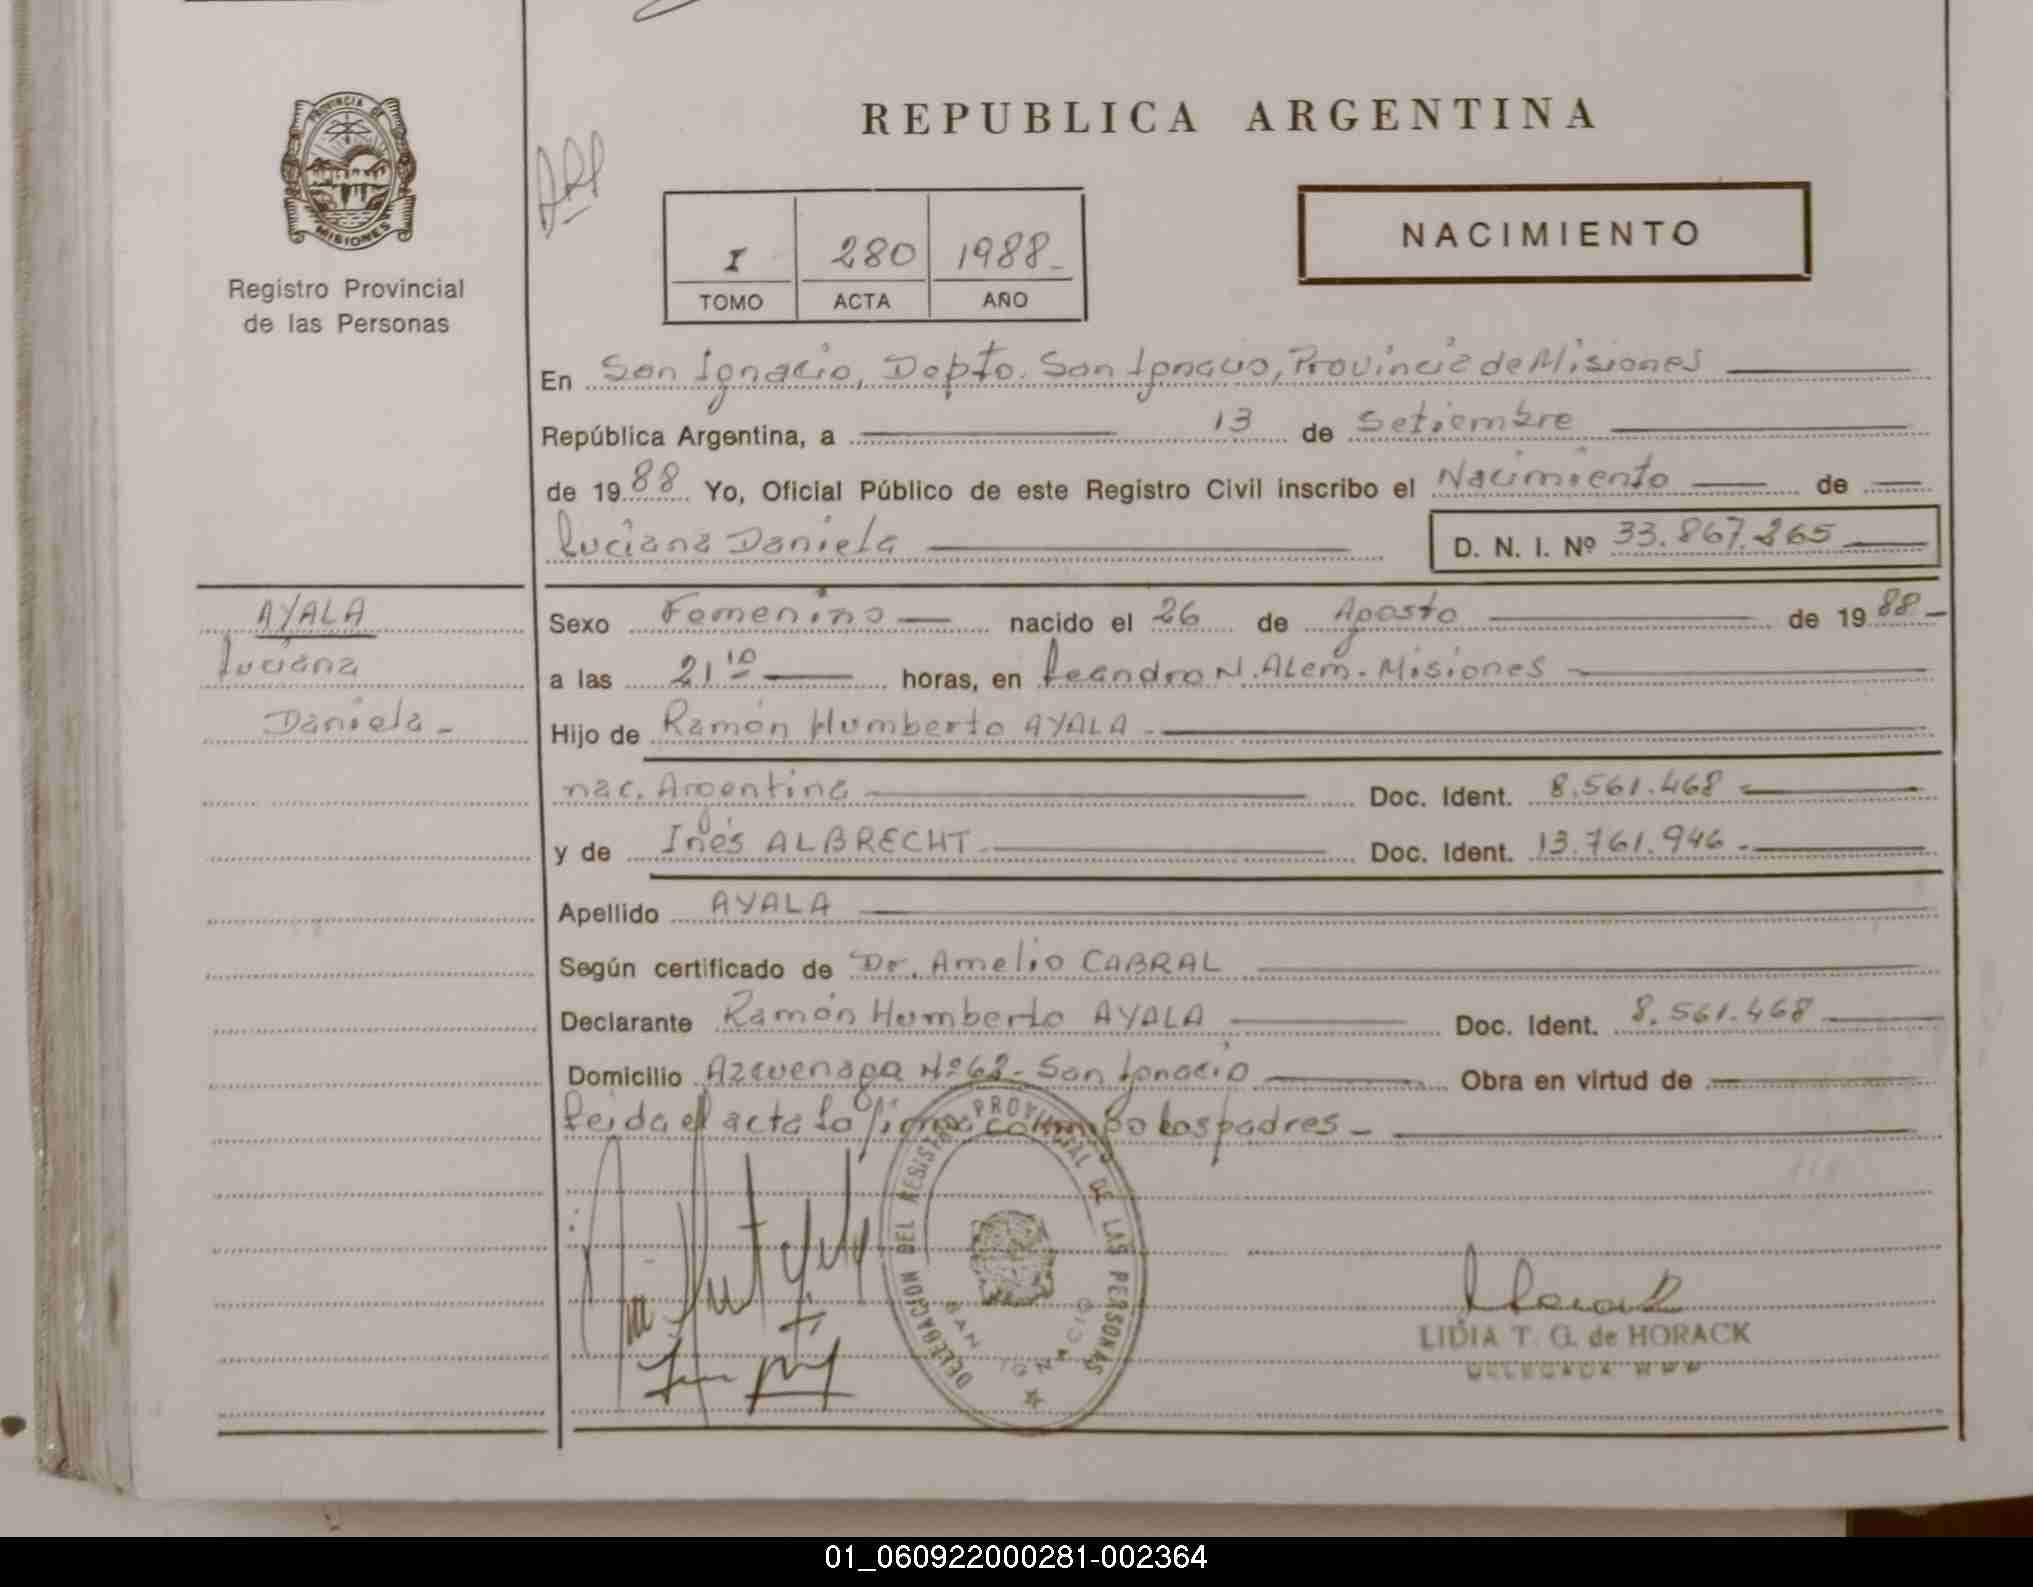 PROVINCIA DE
MISIONES
Registro Provincial
de las Personas
REPUBLICA ARGENTINA
NACIMIENTO
I 280 1988-
TOMO ACTA AÑO
En San Ignacio, Dapto. San Ignacio, Provincia de Misiones
República Argentina, a 13 de Setiembre
de 1988 Yo, Oficial Público de este Registro Civil inscribo el Nacimiento de
Luciana Daniela D. N. I. Nº 33.867.265
AYALA
Luciana
Daniela-
Sexo Femenino nacido el 26 de Agosto de 1988-
a las 21 10 horas, en Leandro N. Alem. Misiones
Hijo de Ramón Humberto AYALA -
nac. Argentina Doc. Ident. 8.561.468
y de Inés ALBRECHT Doc. Ident. 13.761.946-
Apellido AYALA
Según certificado de Dr. Amelio CABRAL
Declarante Ramón Humberto AYALA Doc. Ident. 8.561.468
Domicilio Azcuenaga Nº 62- San Ignacio Obra en virtud de
Leida el acta la firma conmigo los padres-
DELEGACION DEL REGISTRO PROVINCIAL DE LAS PERSONAS
SAN IGNACIO
LIDIA T. G. de HORACK
DELEGADA
01_060922000281-002364